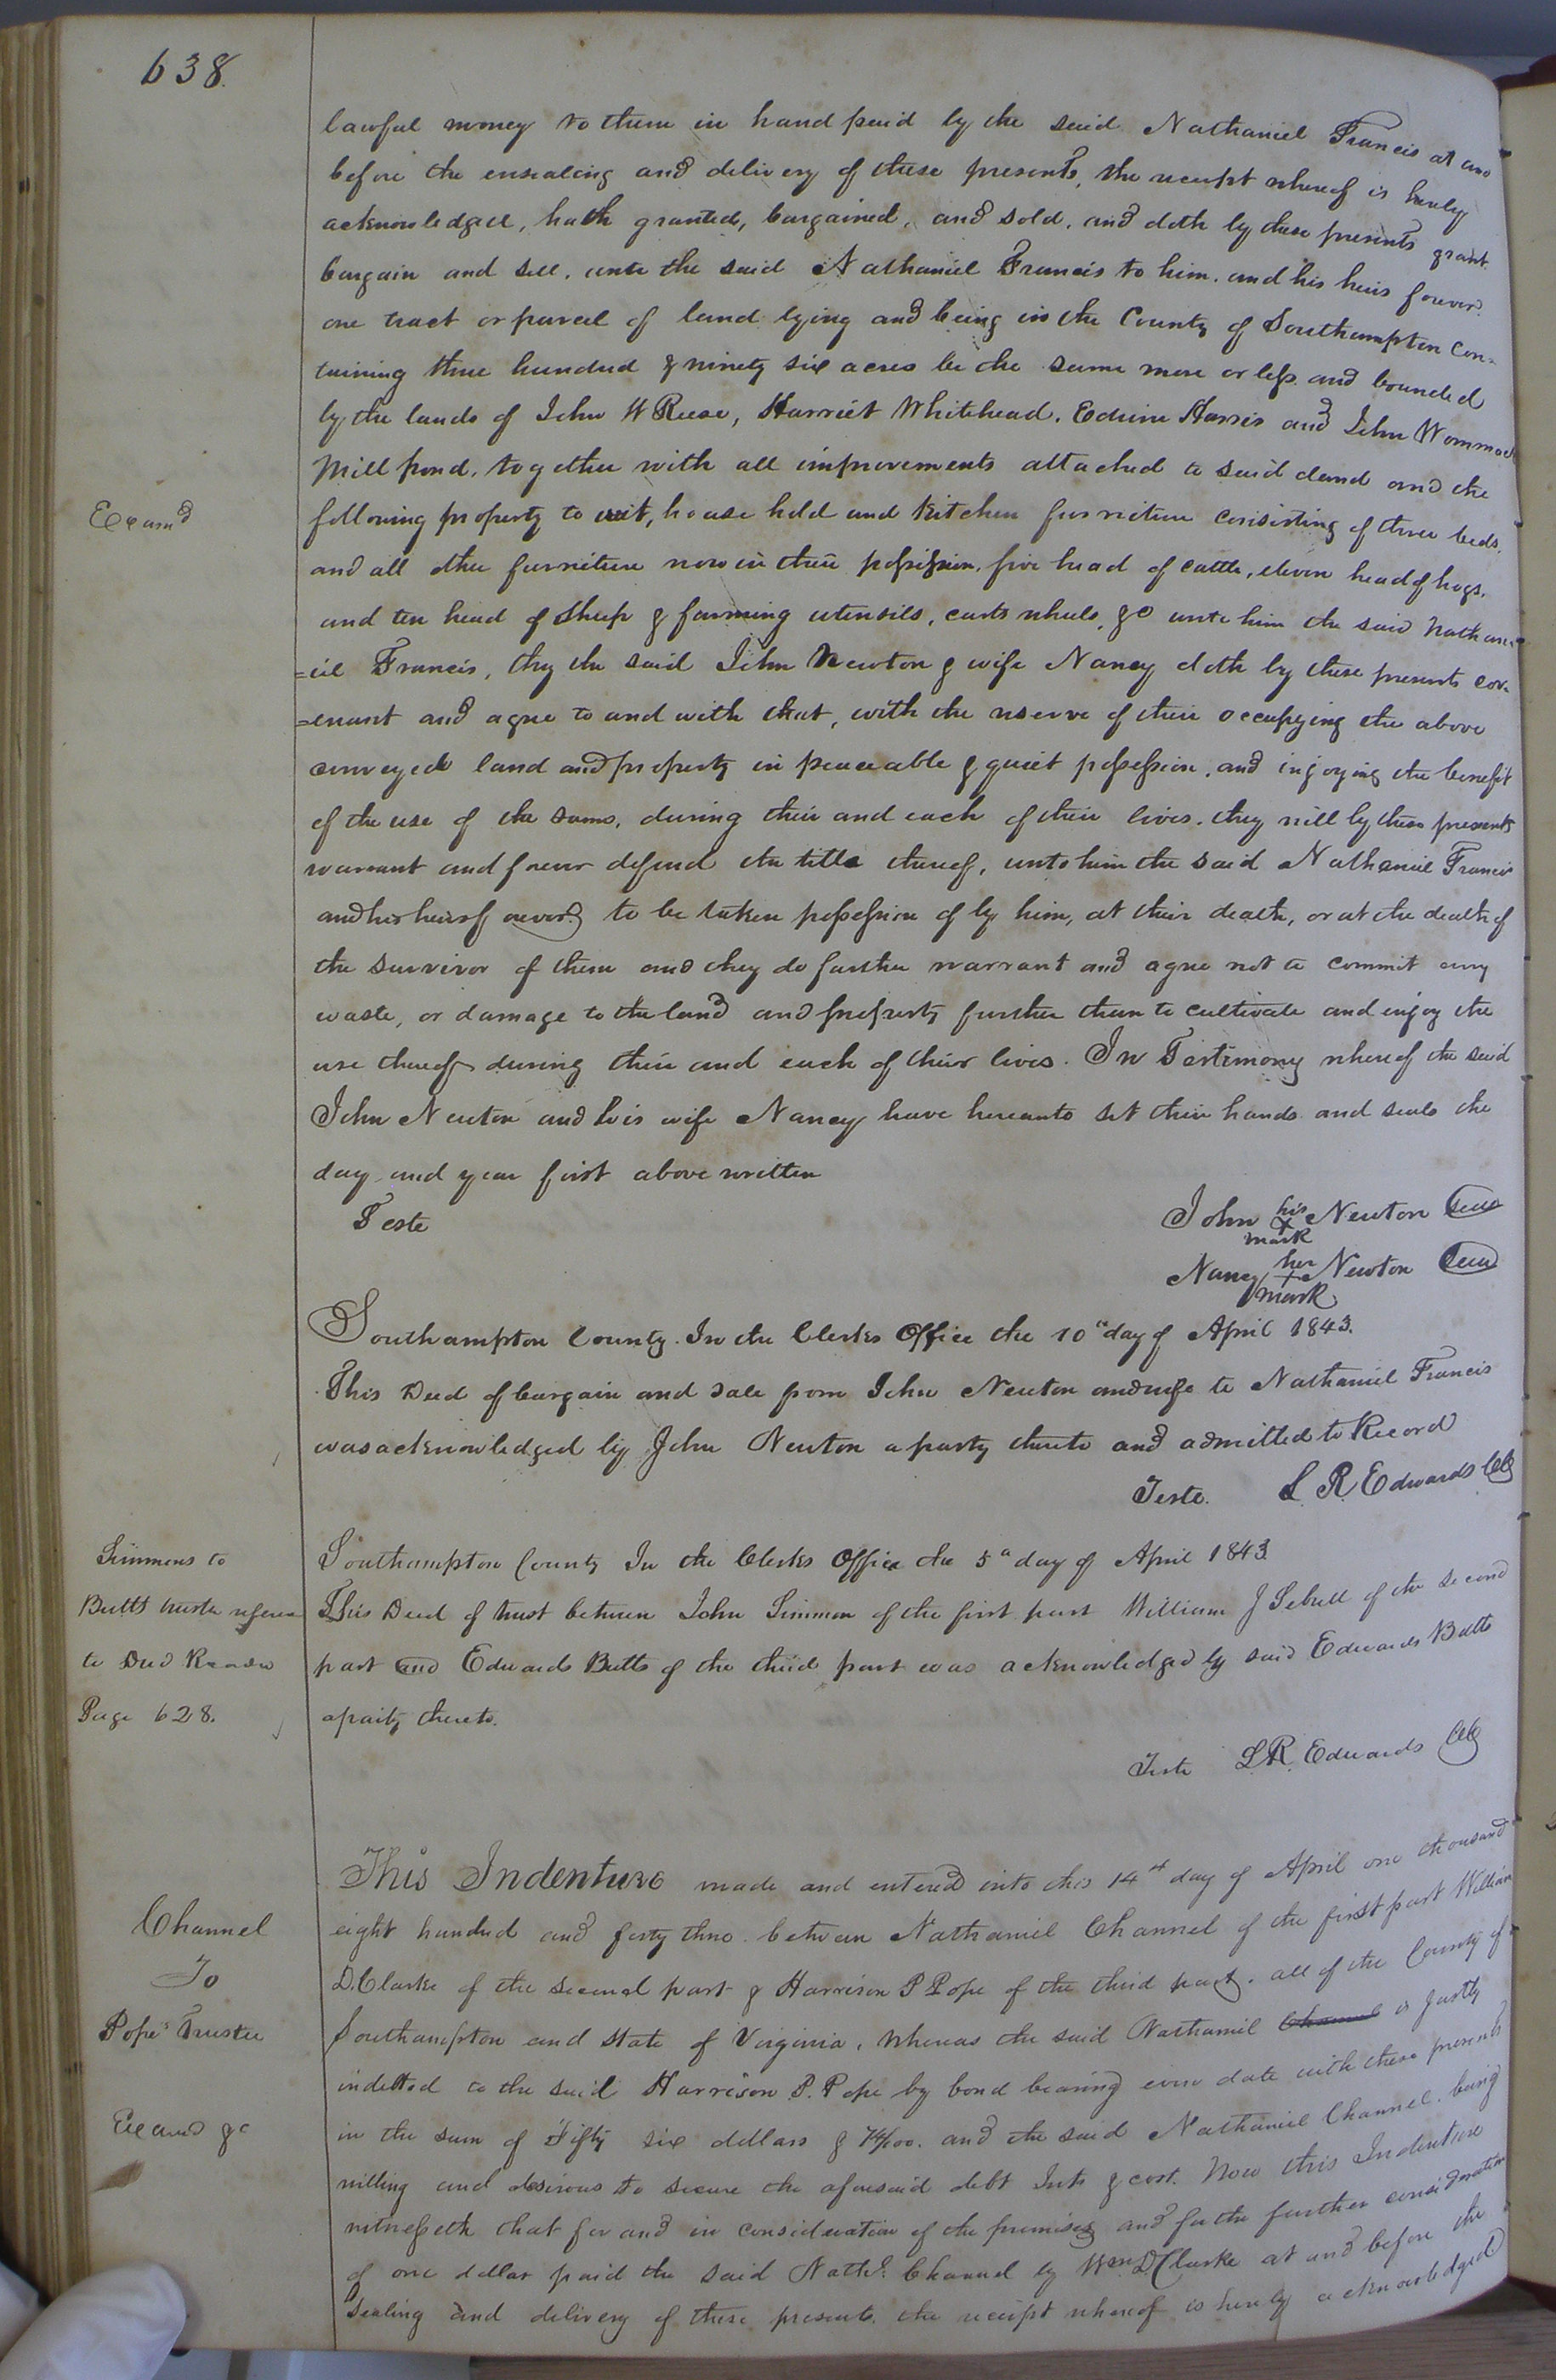 638.
lawful money to them in hand paid by the said Nathaniel Francis at and
before the ensealing and delivery of these presents, the receipt whereof is hereby
acknowledged, hath granted, bargained, and sold, and doth by these presents grant
bargain and sell, unto the said Nathaniel Francis to him, and his heirs forever
one tract or parcel of land lying and being in the County of Southampton con-
taining three hundred & ninety six acres be the same more or less and bounded
by the lands of John W Reese, Harriet Whitehead, Edwin Harris and John Wommack
Mill pond, together with all improvements attached to said land and the
Examd
following property to wit, house hold and kitchen furniture consisting of three beds,
and all other furniture now in their possession, five head of cattle, eleven head of hogs,
and ten head of sheep & farming utensils, carts wheels, &c unto him the said Nathani
=iel Francis, they the said John Newton & wife Nancy doth by these presents cov-
=enant and agree to and with that, with the reserve of their occupying the above
conveyed land and property in peaceable & quiet possession, and injoying the benefit
of the use of the same, during their and each of their lives, they will by these presents
warrant and forever defend the title thereof, unto him the said Nathaniel Francis
and his heirs forever to be taken possession of by him, at their death, or at the death of
the survivor of them and they do further warrant and agree not to commit any
waste, or damage to the land and property further than to cultivate and enjoy the
use thereof during their and each of their lives. In Testimony whereof the said
John Newton and his wife Nancy have hereunto set their hands and seals the
day and year first above written
Teste
John his X mark Newton Seal
Nancy her + mark Newton Seal
Southampton County. In the Clerks Office the 10th day of April 1843.
This Deed of bargain and sale from John Newton and wife to Nathaniel Francis
was acknowledged by John Newton a party thereto and admitted to Record
Teste. L R Edwards CC
Simmons to
Butts trustee refered
to Deed
Page 628.
Southampton County In the Clerks Office the 5th day of April 1843
This Deed of trust between John Simmon of the first part William J Sebrell of the second
part and Edwards Butts of the third part was acknowledged by said Edwards Butts
a party thereto.
Teste L.R. Edwards CC
Channel
To
Pope's Trustee
Examd &c
This Indenture made and entered into this 14th day of April one thousand
eight hundred and forty three between Nathaniel Channel of the first part William
D. Clarke of the second part & Harrison P Pope of the third part, all of the County of
Southampton and State of Virginia, Whereas the said Nathaniel Channel is justly
indebted to the said Harrison P. Pope by bond bearing even date with these presents
in the sum of Fifty six dollars & 74/100. and the said Nathaniel Channel being
willing and desirous to secure the aforesaid debt Ints & cost. Now this Indenture
witnesseth that for and in consideration of the premises and for the further consideration
of one dollar paid the said Nathl. Channel by Wm D Clarke at and before the
sealing and delivery of these presents, the receipt whereof is hereby acknowledged